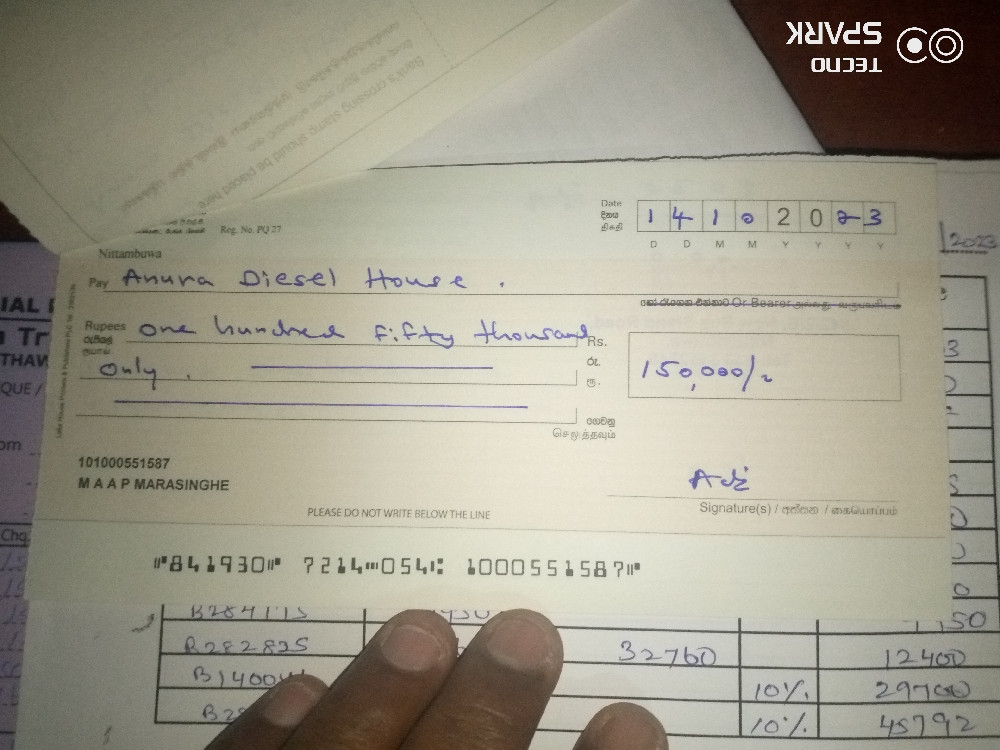 TECNO
SPARK
Bank's crossing stamp should be placed here
Reg. No. PQ 27
Date
දිනය
திகதி
1 4 1 0 2 0 2 3
D D M M Y Y Y Y
/2023
Nittambuwa
Pay Anura Diesel House .
Or Bearer
Rupees One hundred fifty thousand
රුපියල්
ரூபாய்
only .
Rs.
රු.
ரூ.
150,000/-
ගෙවනු
செலுத்தவும்
101000551587
M A A P MARASINGHE
Signature(s) / අත්සන / கையொப்பம்
PLEASE DO NOT WRITE BELOW THE LINE
⑈841930⑈ 7214⑉054⑆ 1000551587⑈
B282895 32760 12400
10% 29700
10% 45792